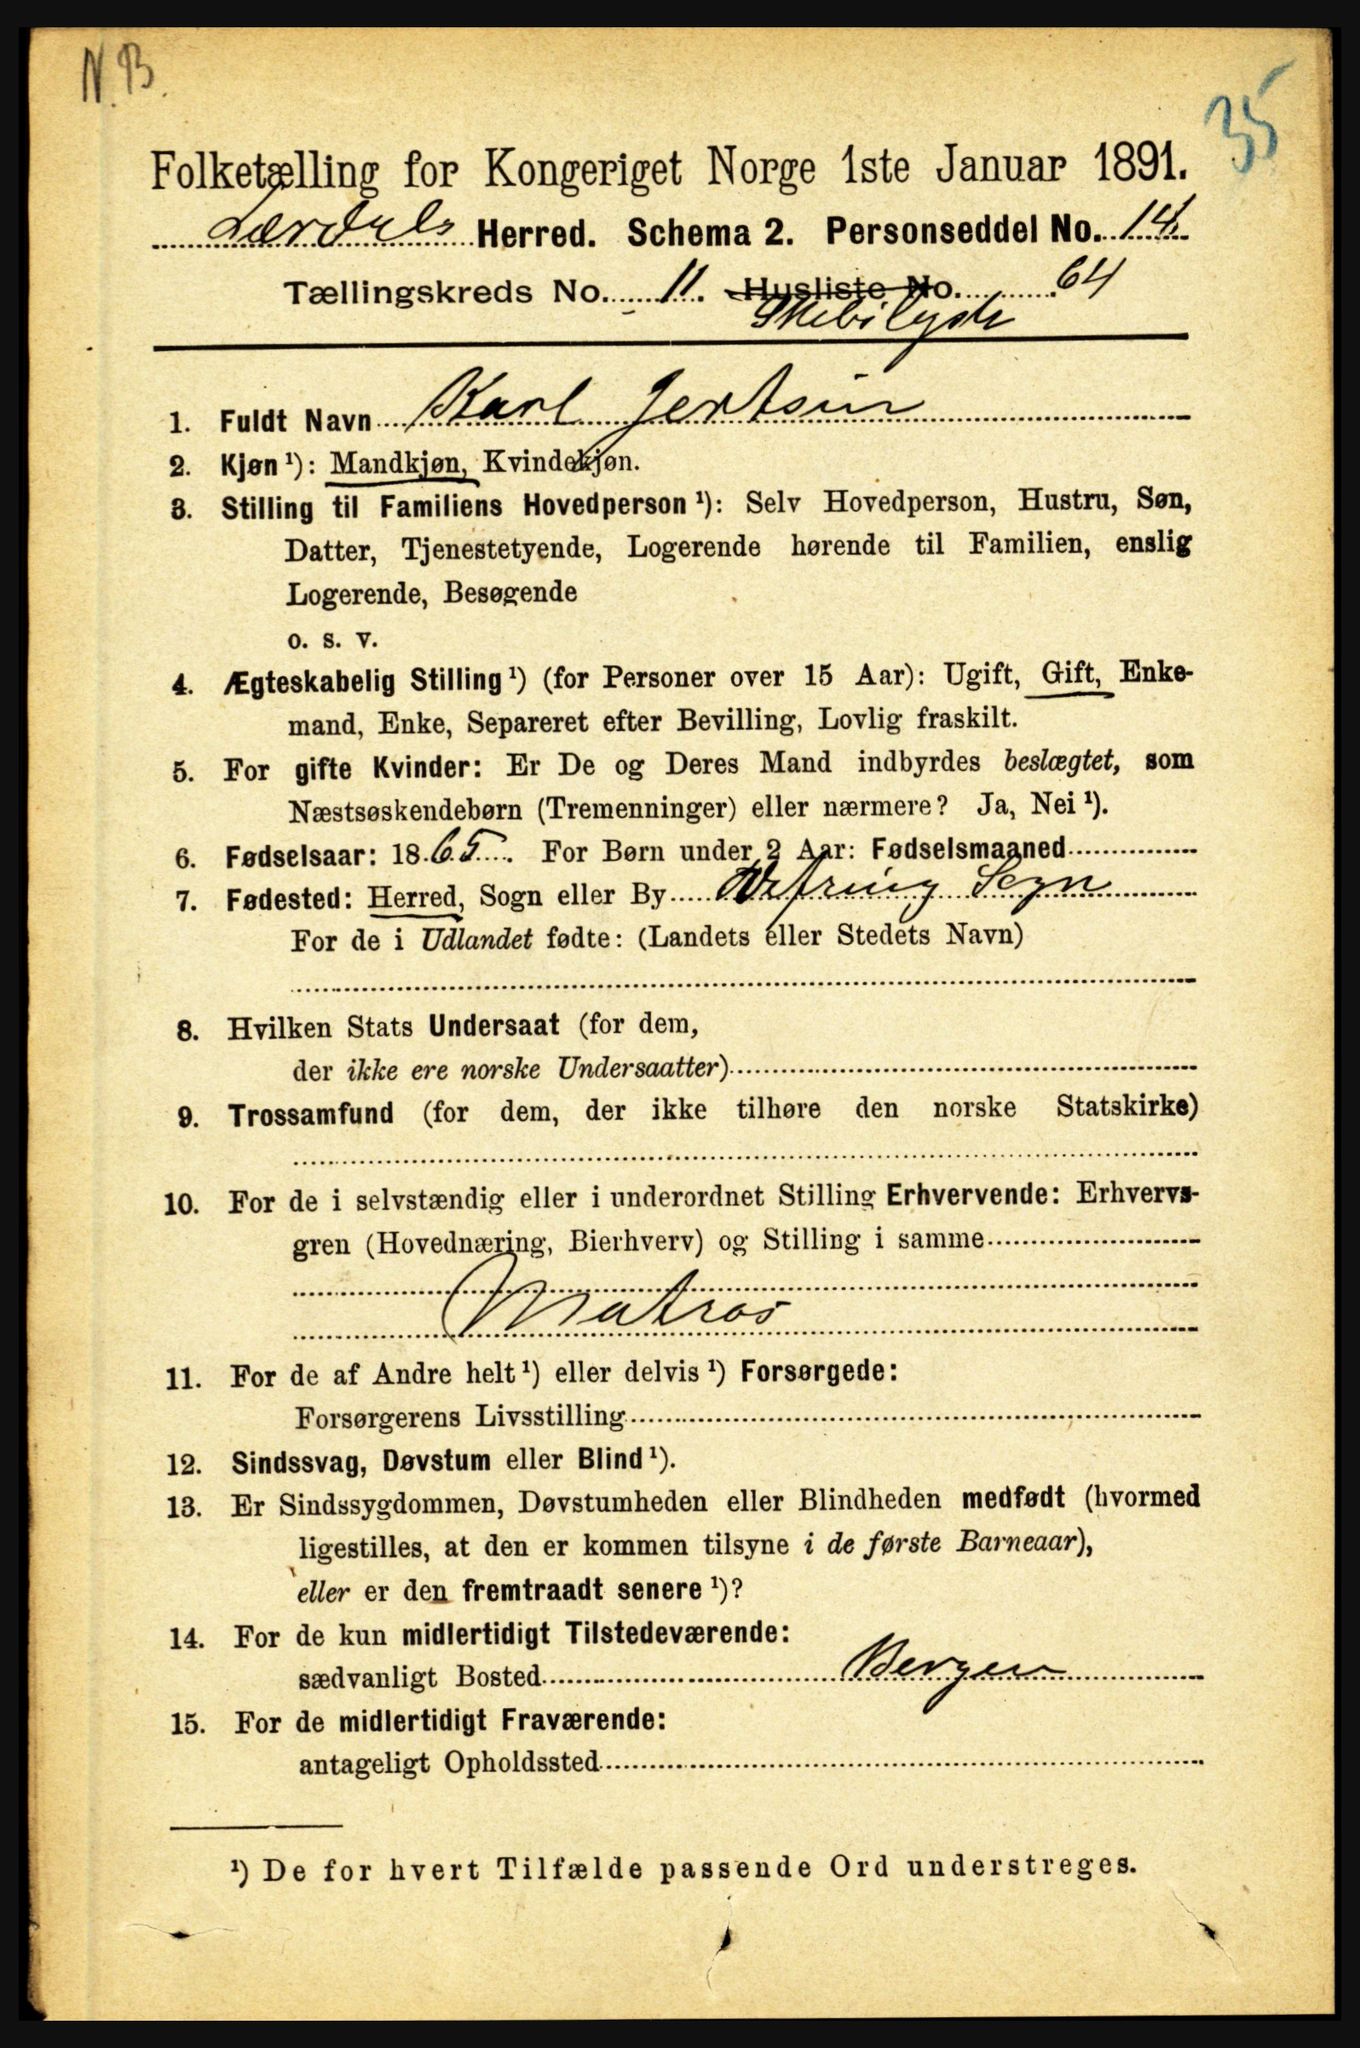 N.B.
35
Folketælling for Kongeriget Norge 1ste Januar 1891.
Lærdals Herred. Schema 2. Personseddel No. 14.
Tællingskreds No. 11. Husliste No. 64
1. Fuldt Navn Karl Jertsen
2. Kjøn ¹): Mandkjøn, Kvindekjøn.
3. Stilling til Familiens Hovedperson ¹): Selv Hovedperson, Hustru, Søn,
Datter, Tjenestetyende, Logerende hørende til Familien, enslig
Logerende, Besøgende
o. s. v.
4. Ægteskabelig Stilling ¹) (for Personer over 15 Aar): Ugift, Gift, Enke-
mand, Enke, Separeret efter Bevilling, Lovlig fraskilt.
5. For gifte Kvinder: Er De og Deres Mand indbyrdes beslægtet, som
Næstsøskendebørn (Tremenninger) eller nærmere? Ja, Nei ¹).
6. Fødselsaar: 1865. For Børn under 2 Aar: Fødselsmaaned
7. Fødested: Herred, Sogn eller By Vefring Sogn
For de i Udlandet fødte: (Landets eller Stedets Navn)
8. Hvilken Stats Undersaat (for dem,
der ikke ere norske Undersaatter)
9. Trossamfund (for dem, der ikke tilhøre den norske Statskirke)
10. For de i selvstændig eller i underordnet Stilling Erhvervende: Erhvervs-
gren (Hovednæring, Bierhverv) og Stilling i samme
Matros
11. For de af Andre helt ¹) eller delvis ¹) Forsørgede:
Forsørgerens Livsstilling
12. Sindssvag, Døvstum eller Blind ¹).
13. Er Sindssygdommen, Døvstumheden eller Blindheden medfødt (hvormed
ligestilles, at den er kommen tilsyne i de første Barneaar),
eller er den fremtraadt senere ¹)?
14. For de kun midlertidigt Tilstedeværende:
sædvanligt Bosted Bergen
15. For de midlertidigt Fraværende:
antageligt Opholdssted
¹) De for hvert Tilfælde passende Ord understreges.